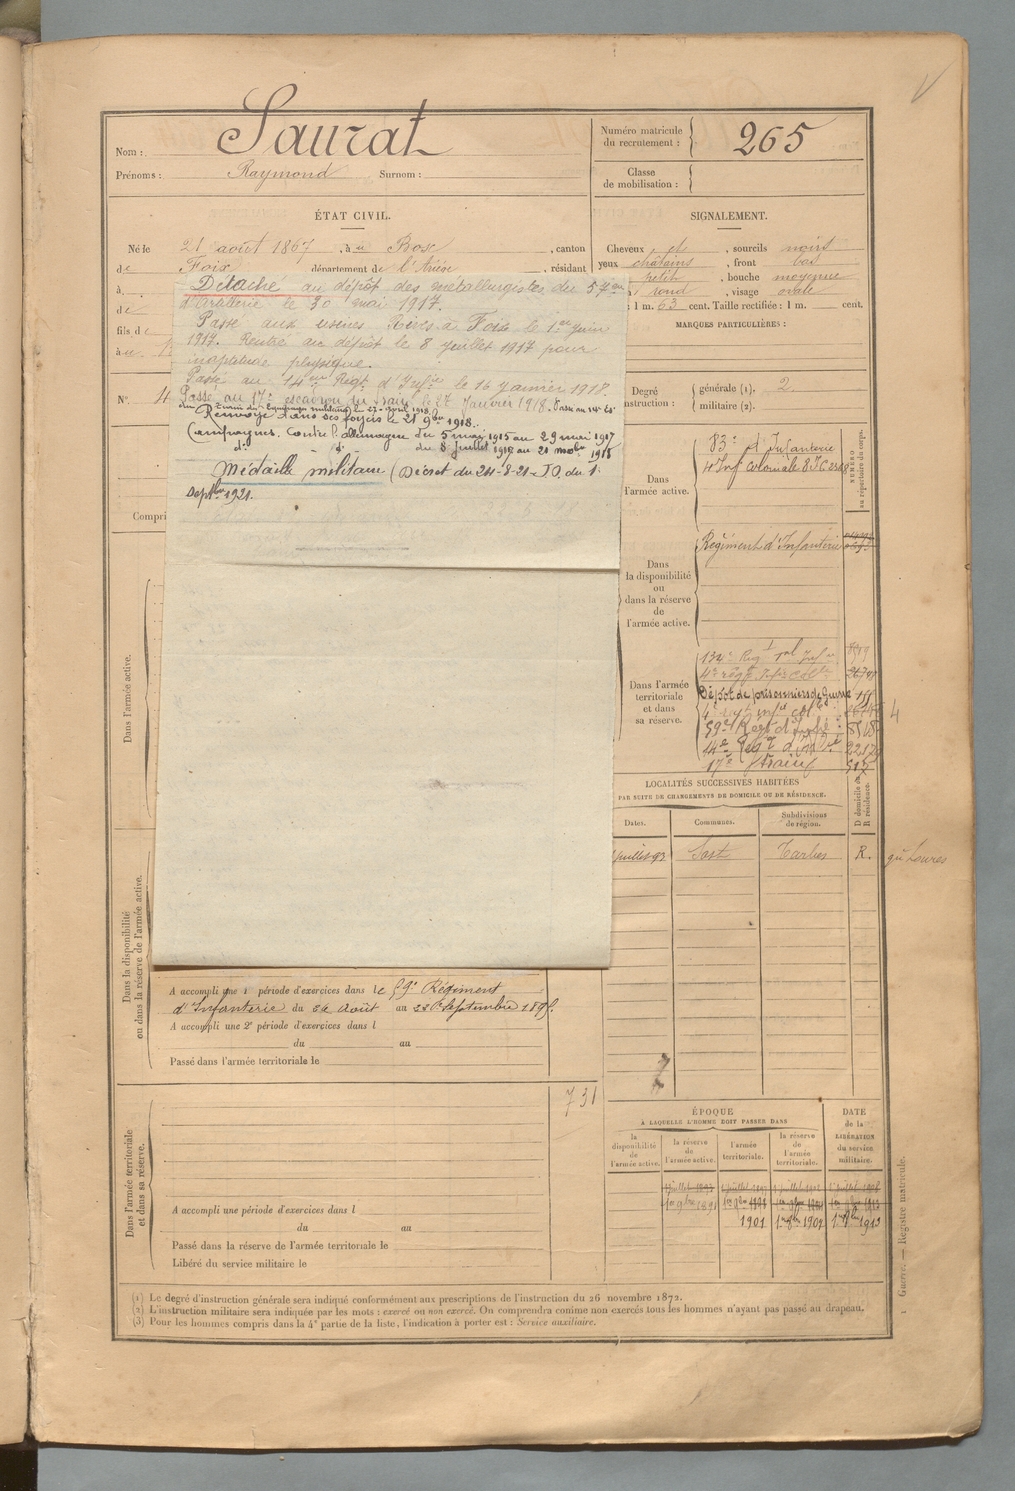 Nom : Saurat
Prénoms : Raymond Surnom :
Numéro matricule du recrutement : 265
Classe de mobilisation :
ÉTAT CIVIL.
Né le 21 août 1867, à Bosc, canton
de Foix département de l'Ariège, résidant
à
de
fils de
à
SIGNALEMENT.
Cheveux et, sourcils noirs
yeux châtains, front bas
petit, bouche moyenne
rond, visage ovale
: 1 m. 63 cent. Taille rectifiée : 1 m. cent.
MARQUES PARTICULIÈRES :
Détaché au dépôt des métallurgistes du 57me
d'artillerie le 30 mai 1917.
Passé aux usines Rives à Foix le 1er juin
1917. Rentré au dépôt le 8 juillet 1917 pour
inaptitude physique.
Passé au 14me Régt d'Infie le 16 Janvier 1918.
Passé au 17e escadron du Train le 27 Janvier 1918. Passé au 14e
Train des Equipages militaires le 27 avril 1918
Renvoyé dans ses foyers le 21 9bre 1918.
Campagnes. Contre l'allemagne du 5 mars 1915 au 29 mai 1917
d° d° du 8 Juillet 1917 au 21 novbre 1918
Médaille militaire (Décret du 24-8-21 - J.O. du 1
Septbre 1921.
N° 4
Compri
Degré
nstruction :
générale (1). 2
militaire (2).
NUMÉRO
au répertoire du corps.
Dans l'armée active.
83e d'Infanterie
4 Inf coloniale
Dans la disponibilité ou dans la réserve de l'armée active.
Régiment d'Infanterie
Dans l'armée territoriale et dans sa réserve.
134e Regt Tal Infie
4e régt Infie Colle
Dépôt de prisonniers de Guerre
4e regt infie colle
59e Regt d'Infie
14e Regt d'Infie
17e Train
4
LOCALITÉS SUCCESSIVES HABITÉES
PAR SUITE DE CHANGEMENTS DE DOMICILE OU DE RÉSIDENCE.
Dates. Communes. Subdivisions de région. D domicile ou R résidence.
juillet 93 Sost Tarbes R.
Dans l'armée active.
Dans la disponibilité
ou dans la réserve de l'armée active.
A accompli une 1 période d'exercices dans le 59e Régiment
d'Infanterie du 26 Août au 22 Septembre 1895.
A accompli une 2e période d'exercices dans l
du au
Passé dans l'armée territoriale le
731
Dans l'armée territoriale
et dans sa réserve.
A accompli une période d'exercices dans l
du au
Passé dans la réserve de l'armée territoriale le
Libéré du service militaire le
ÉPOQUE
A LAQUELLE L'HOMME DOIT PASSER DANS
la disponibilité de l'armée active.
la réserve de l'armée active.
l'armée territoriale.
la réserve de l'armée territoriale.
DATE de la LIBÉRATION du service militaire.
1er 9bre 1891
1901 1er 9bre 1907 1er 9bre 1913
(1) Le degré d'instruction générale sera indiqué conformément aux prescriptions de l'instruction du 26 novembre 1872.
(2) L'instruction militaire sera indiquée par les mots : exercé ou non exercé. On comprendra comme non exercés tous les hommes n'ayant pas passé au drapeau.
(3) Pour les hommes compris dans la 4e partie de la liste, l'indication à porter est : Service auxiliaire.
Guerre. — Registre matricule.